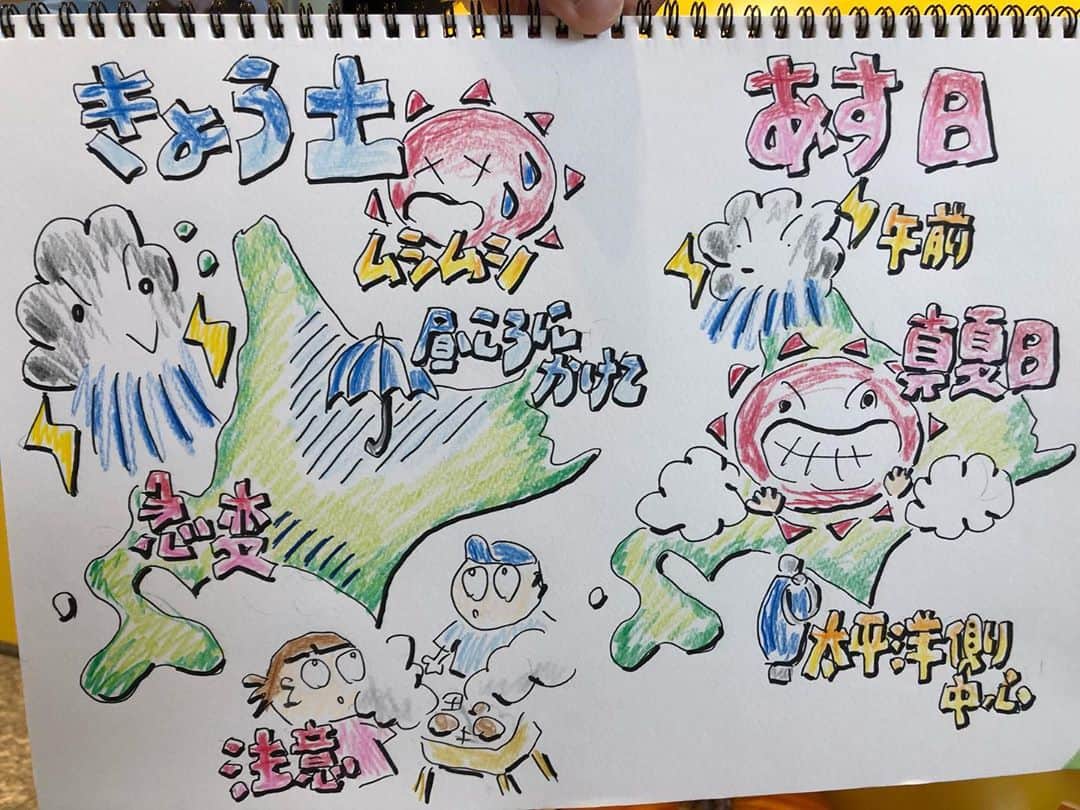 きょう土
ムシムシ
昼ころにかけて
急変
注意
あす日
午前
真夏日
太平洋側り
中心